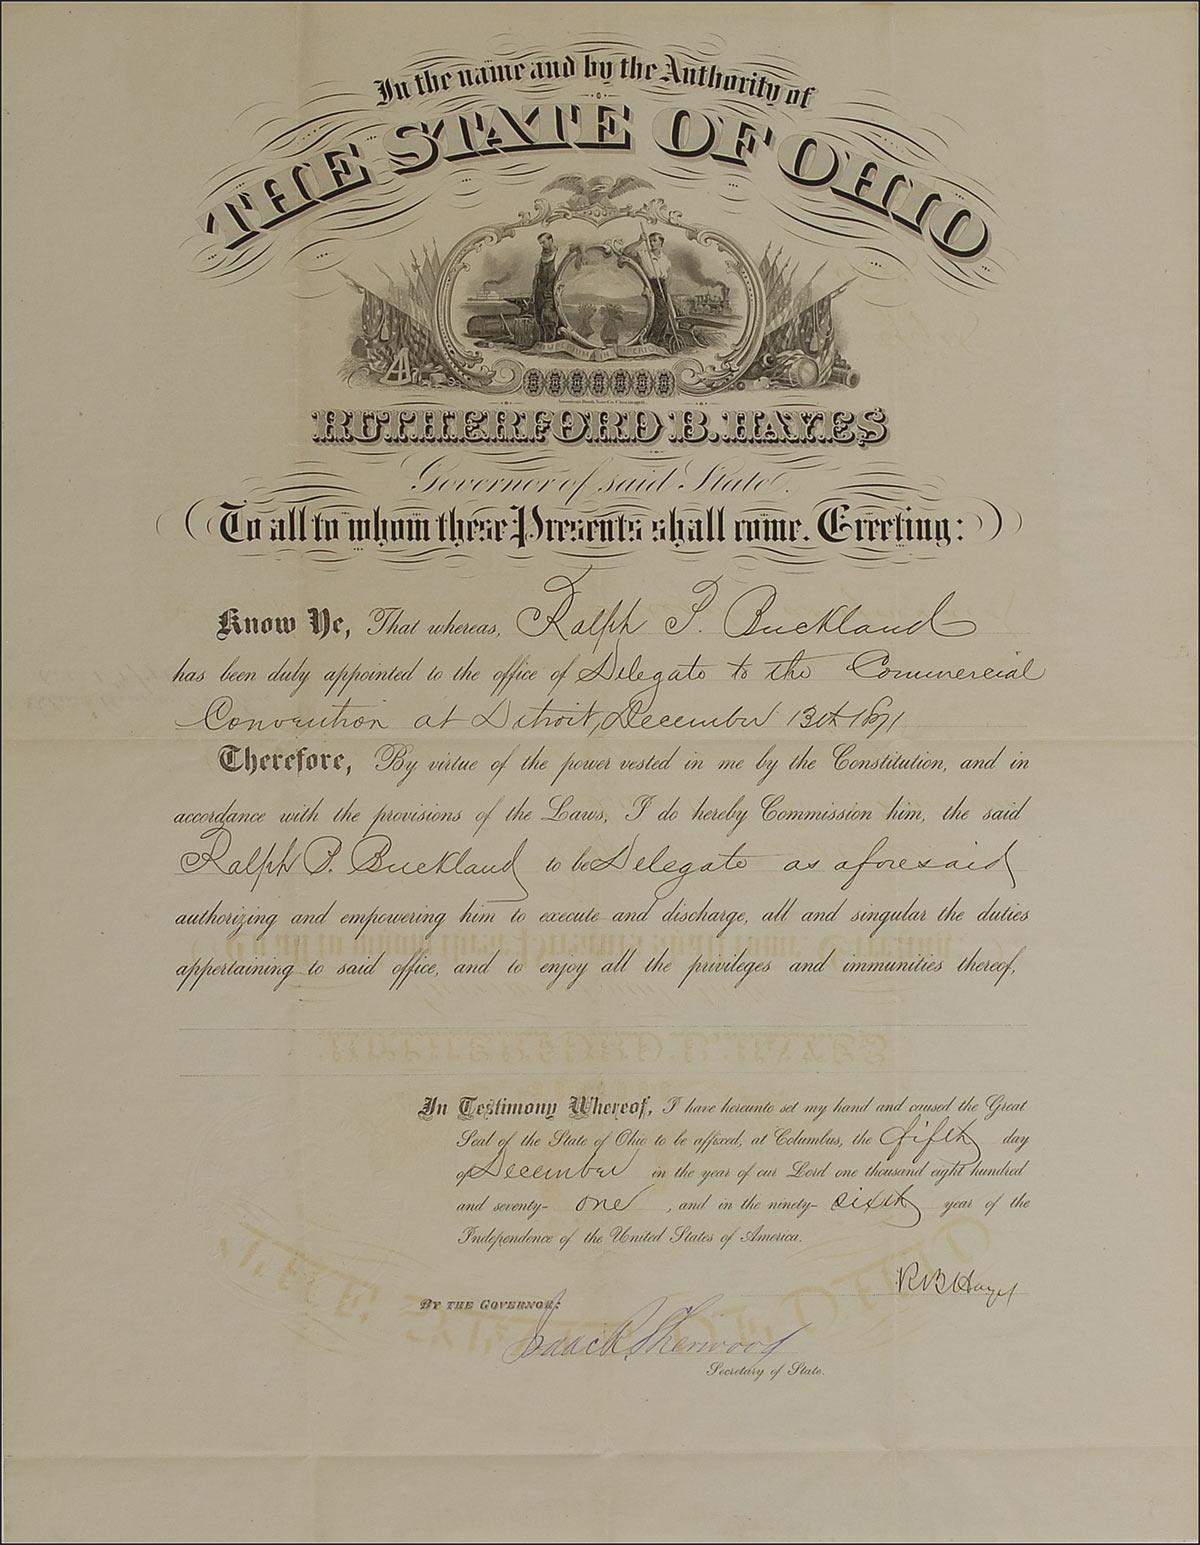 In the name and by the Authority of
THE STATE OF OHIO
IMPERIUM IN IMPERIO
American Bank Note Co. Cincinnati.
RUTHERFORD B. HAYES
Governor of said State.
To all to whom these Presents shall come. Greeting:
Know Ye, That whereas, Ralph P. Buckland
has been duly appointed to the office of Delegate to the Commercial
Convention at Detroit, December 13th 1871
Therefore, By virtue of the power vested in me by the Constitution, and in
accordance with the provisions of the Laws, I do hereby Commission him, the said
Ralph P. Buckland to be Delegate as aforesaid
authorizing and empowering him to execute and discharge, all and singular the duties
appertaining to said office, and to enjoy all the privileges and immunities thereof,
In Testimony Whereof, I have hereunto set my hand and caused the Great
Seal of the State of Ohio to be affixed, at Columbus, the fifth day
of December in the year of our Lord one thousand eight hundred
and seventy- one , and in the ninety- sixth year of the
Independence of the United States of America.
R B Hayes
BY THE GOVERNOR:
Isaac R. Sherwood
Secretary of State.